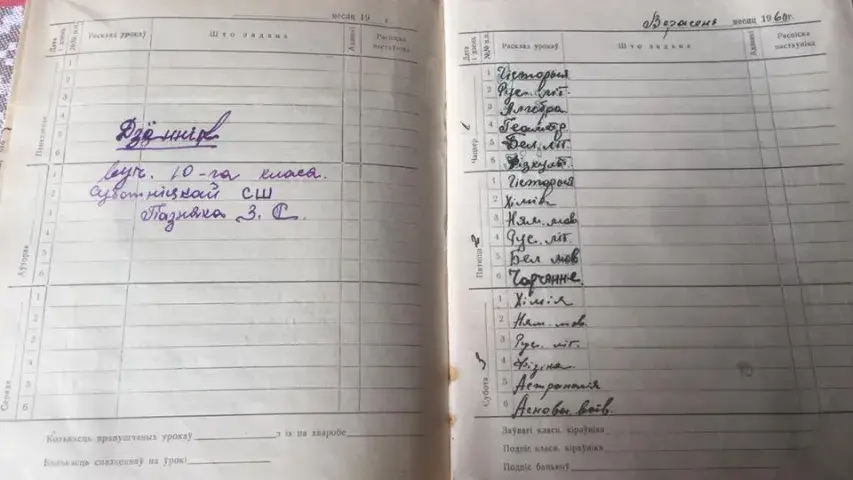 месяц 19 г.
Дата і дзень №№ п.п. Расклад урокаў Што задана Адзнакі Роспіска настаўніка
Панядзелак
1
2
3
4
5
6
Дзённік
вуч. 10-га класа.
Суботніцкай СШ
Пазняка З. С.
Аўторак
1
2
3
4
5
6
Серада
1
2
3
4
5
6
Колькасць прапушчаных урокаў з іх па хваробе
Колькасць спазненняў на ўрокі
Верасень месяц 1960 г.
Дата і дзень №№ п.п. Расклад урокаў Што задана Адзнакі Роспіска настаўніка
Чацвер 1
1 Гісторыя
2 Рус. літ.
3 Алгебра
4 Геаметр.
5 Бел. літ.
6 Фізкульт.
Пятніца 2
1 Гісторыя
2 Хімія
3 Ням. мов.
4 Рус. літ.
5 Бел мов
6 Чарчэнне.
Субота 3
1 Хімія
2 Ням. мов.
3 Рус. літ.
4 Фізіка
5 Астраномія
6 Асновы
Заўвагі класн. кіраўніка
Подпіс класн. кіраўніка
Подпіс бацькоў